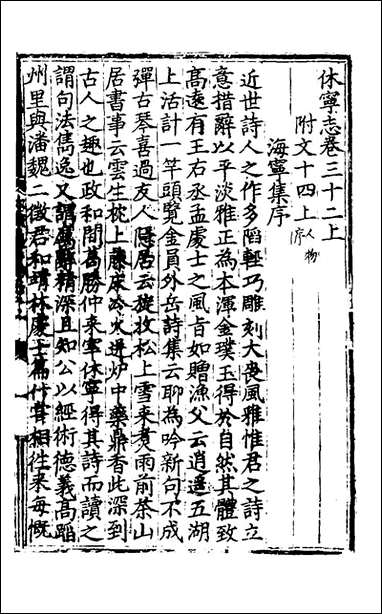 休寧志卷三十二上
附文十四上人物序
海寧集序
近世詩人之作多陷輕巧雕刻大喪風雅惟君之詩立
意措辭以平淡雅正為本渾金璞玉得於自然其體致
高遠有王右丞孟處士之風旨如贈漁父云逍遥五湖
上活計一竿頭覽金員外岳詩集云聊為吟新句不成
彈古琴喜過友人隱居云旋收松上雪來煮雨前茶山
居書事云雲生枕上藤床冷火迸炉中藥鼎香此深到
古人之趣也政和間葛勝仲来宰休寧得其詩而讀之
謂句法雋逸又謂寓辭精深且知公以經術德義高蹈
州里與潘魏二徵君和靖林處士為什嘗相徃来每慨